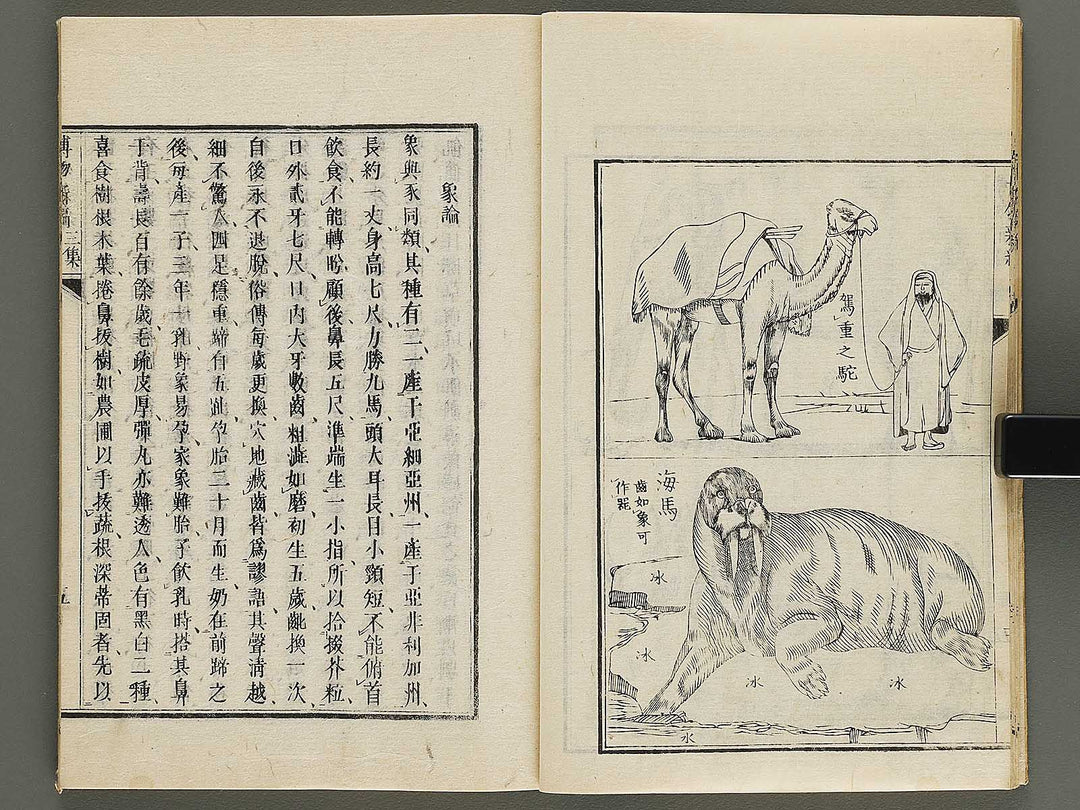 駕重之駝
海馬
齒如象可
作器
冰
冰
冰
冰
水
象論
象與豕同類其種有二一產于亞細亞州一產于亞非利加州
長約一丈身高七尺力勝九馬頭大耳長目小頸短不能俯首
飲食不能轉盼顧後鼻長五尺準端生一小指所以拾掇芥粒
口外貳牙七尺口內大牙收齒粗澁如磨初生五歲齔換一次
自後永不退脫俗傳每歲更換穴地藏齒皆爲謬語其聲淸越
細不驚人四足穩重蹄有五趾孕胎二十月而生奶在前蹄之
後每產一子三年一乳野象易孕家象難胎子飲乳時搭其鼻
于背壽長百有餘歲毛疏皮厚彈丸亦難透人色有黑白二種
喜食樹根木葉捲鼻拔樹如農圃以手拔蔬根深蒂固者先以
博物新編三集
五